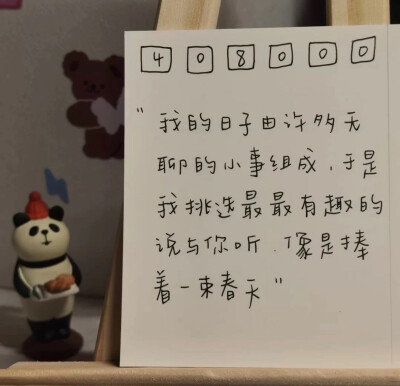 408000
"我的日子由许多无
聊的小事组成，于是
我挑选最最有趣的
说与你听，像是捧
着一束春天"